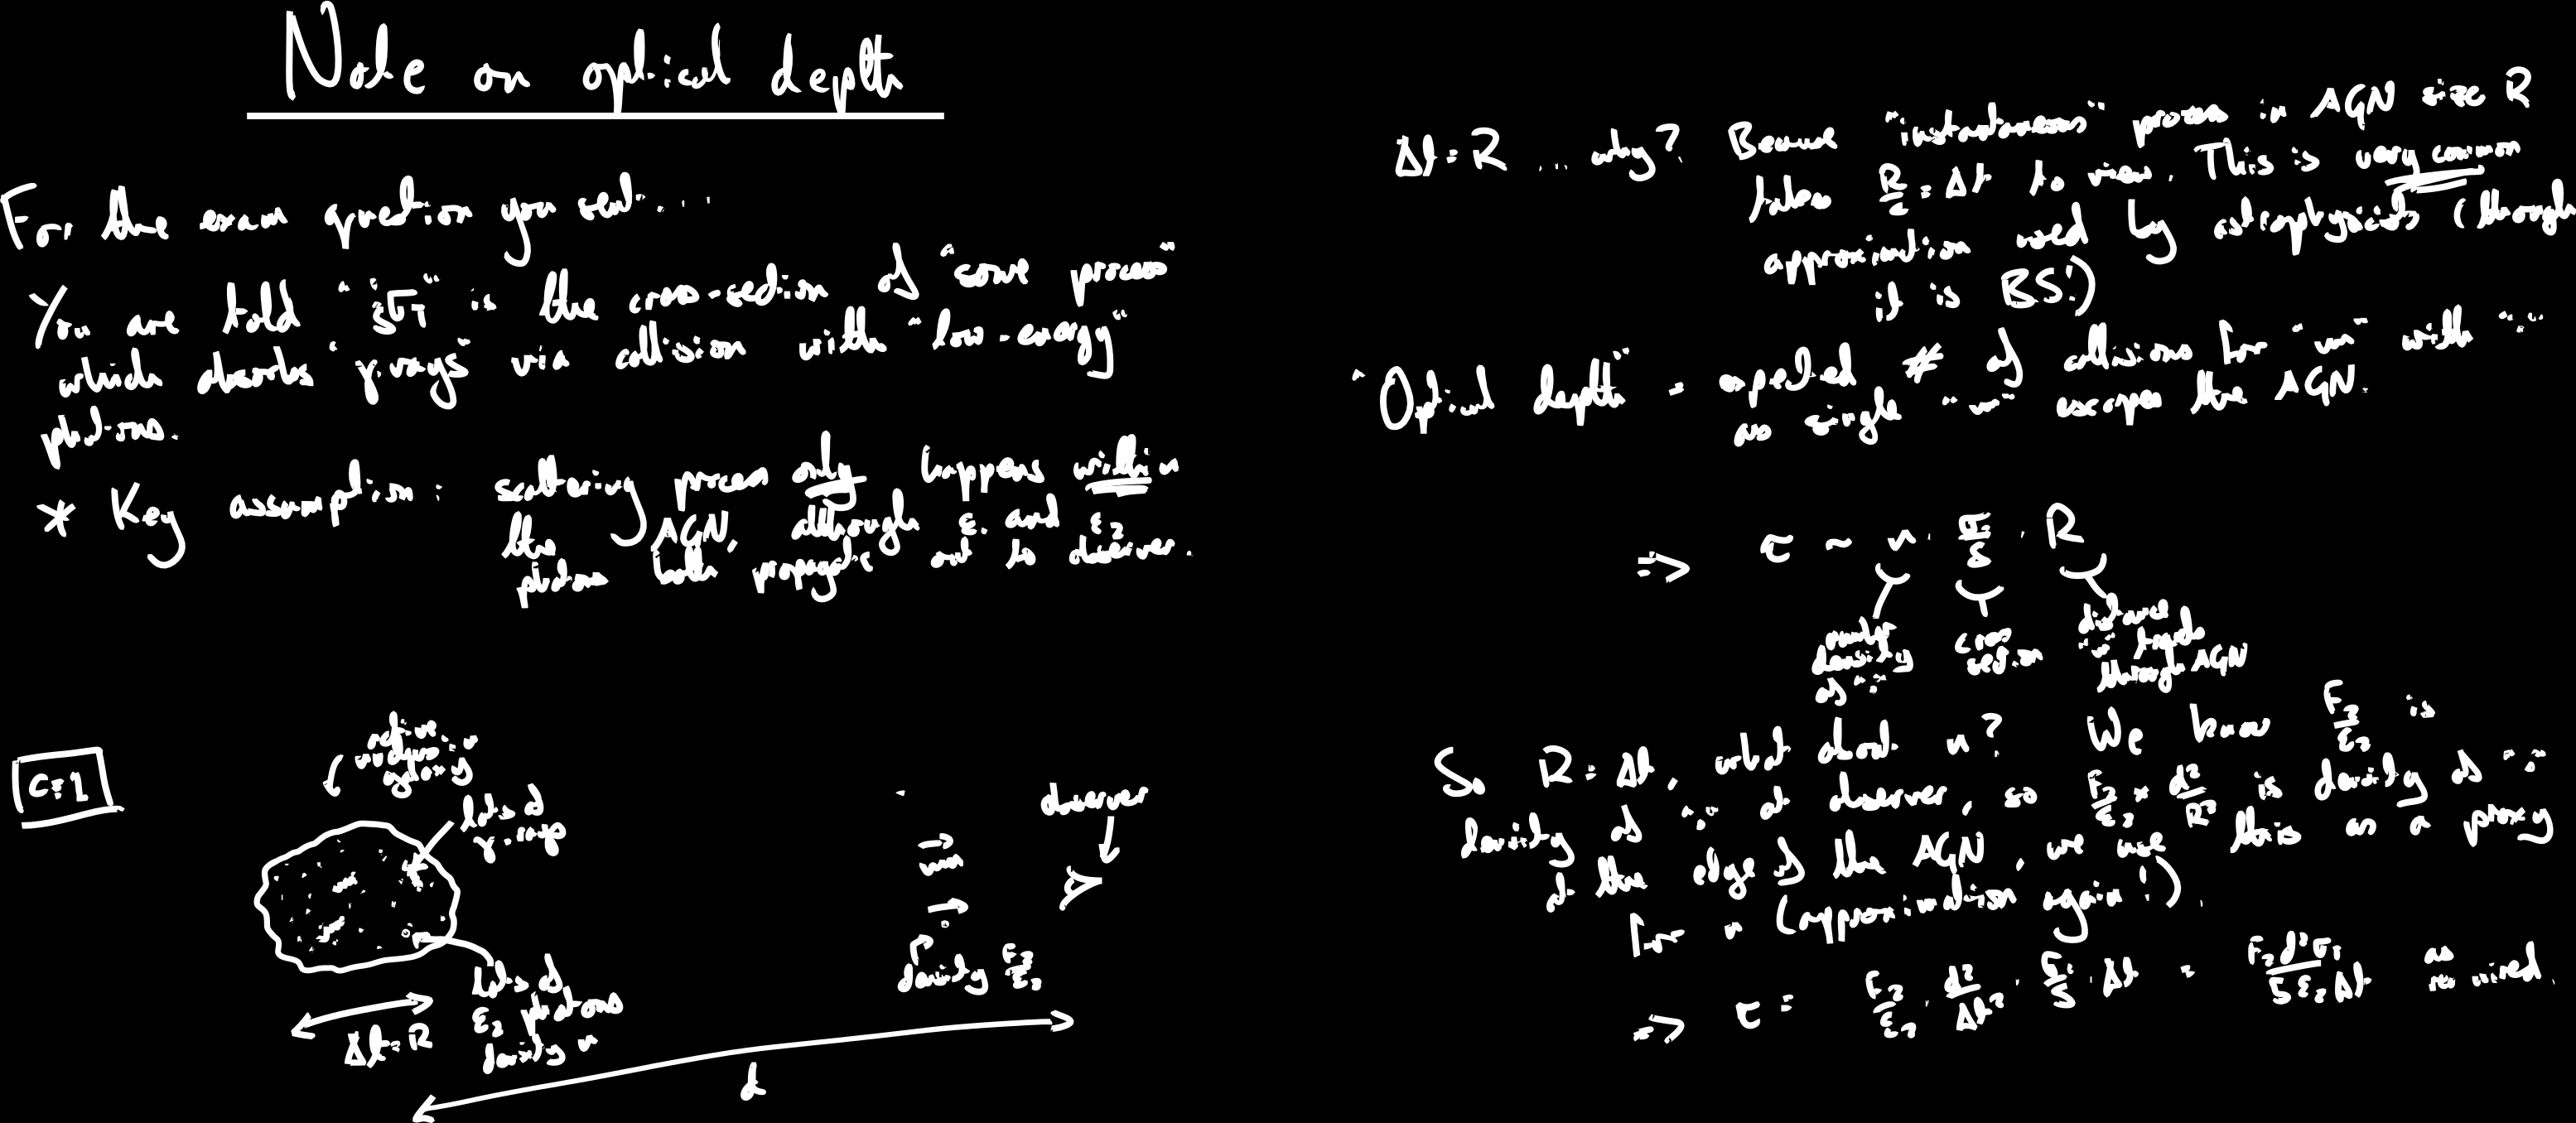 Note on optical depth
For the exam question you sent...
You are told "1/5 σT" is the cross-section of "some process"
which absorbs "γ-rays" via collision with "low-energy"
photons.
* Key assumption: scattering process only happens within
the AGN, although ε1 and ε2
photons both propagate out to observer.
c=1
active
nucleus
galaxy
lots of
γ-rays
lots of
ε2 photons
density n
Δt=R
d
observer
density F2/ε2
Δt=R ... why? Because "instantaneous" process in AGN size R
takes R/c = Δt to view. This is very common
approximation used by astrophysicists (though
it is BS!)
"Optical depth" = expected # of collisions for "~" with "·"
as single "~" escapes the AGN.
=> τ ~ n · σT/5 · R
number
density
of "·"
cross
section
distance
"~" travels
through AGN
So R=Δt, what about n? We know F2/ε2 is
density of "·" at observer, so F2/ε2 × d²/R² is density of "·"
at the edge of the AGN, we use this as a proxy
for n (approximation again!).
=> τ = F2/ε2 · d²/Δt² · σT/5 · Δt = F2 d² σT / 5 ε2 Δt as
required.